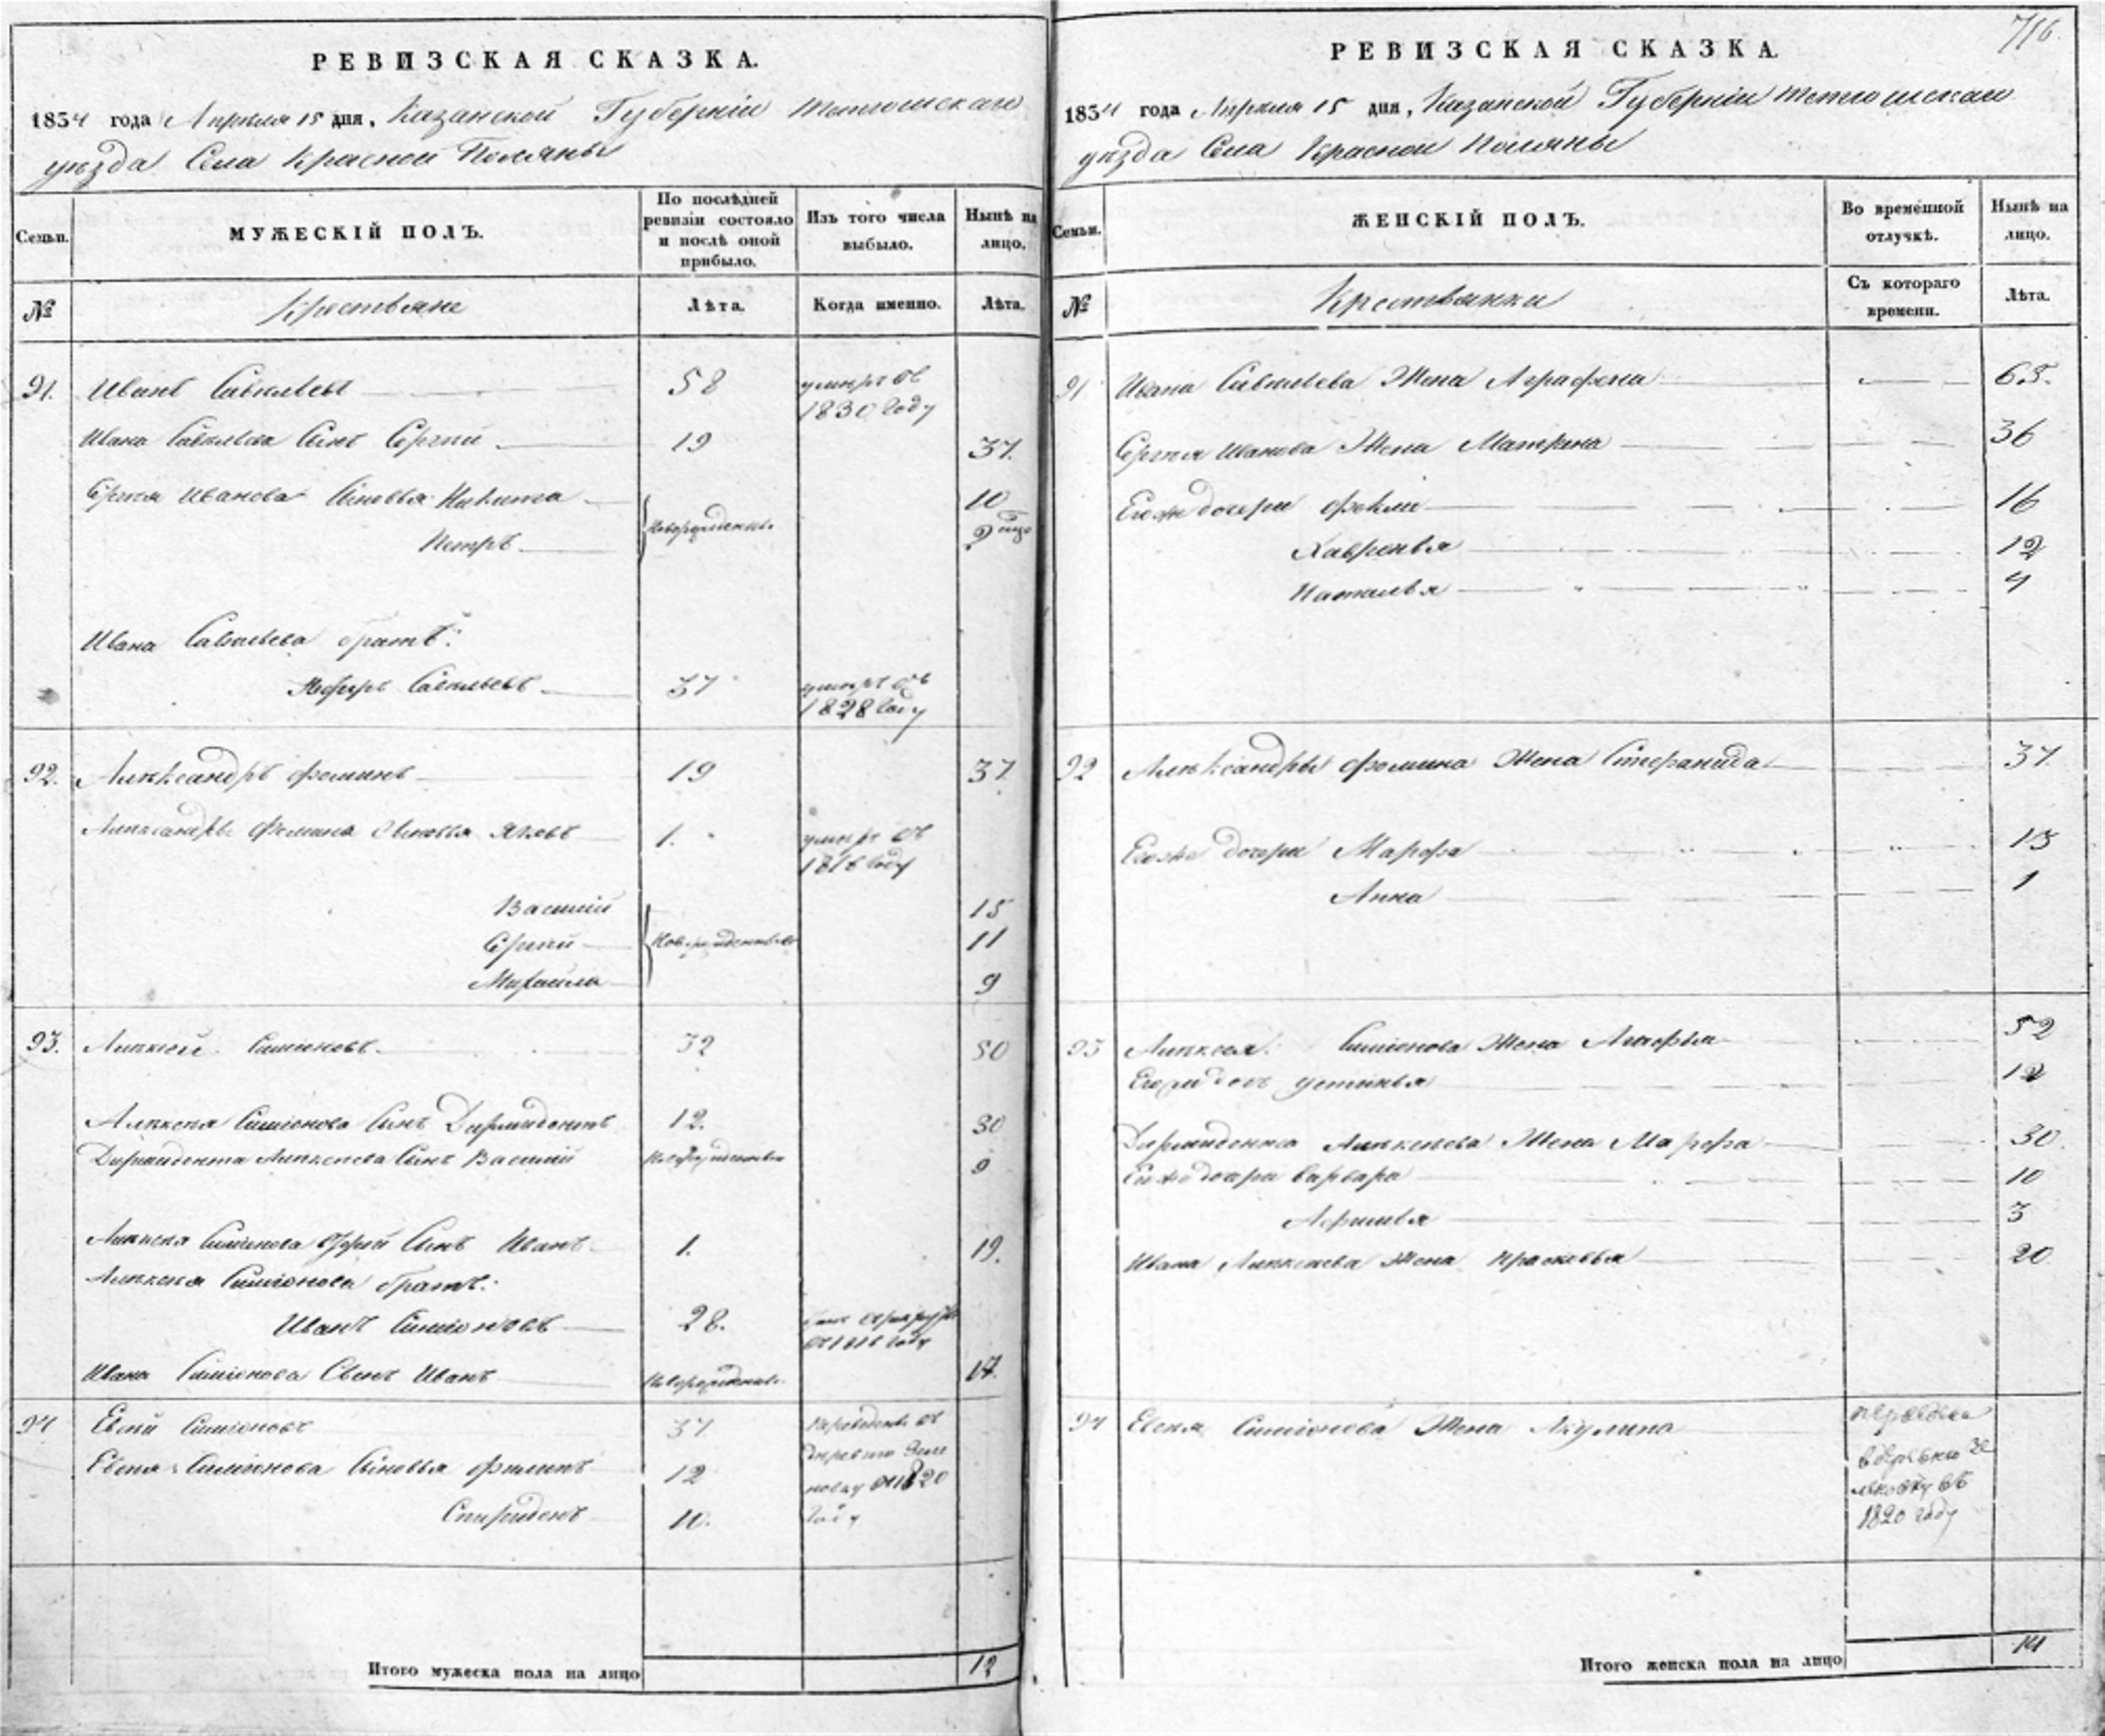 РЕВИЗСКАЯ СКАЗКА.
1834 года Апреля 15 дня, Казанской Губерніи Тетюшскаго
уезда Села Красной Поляны
Семьи.
МУЖЕСКІЙ ПОЛЪ.
По послѣдней
ревизіи состояло
и послѣ оной
прибыло.
Изъ того числа
выбыло.
Нынѣ на
лицо.
№
Крестьяне
Лѣта.
Когда именно.
Лѣта.
91. Иванъ Савельевъ 58 умиръ въ
1830 году
Ивана Савельева Сынъ Сергий 19 37.
Сергия Иванова Сыновья Никита 10
Новорожденны
Петръ 9
Ивана Савельева братъ:
Савельевъ 37 умиръ въ
1828 году
92. Александръ Фоминъ 19 37.
Александры Фомина Сыновья Яковъ 1. умиръ въ
1816 году
Василий 15
Сергий Новорожденные 11
Михайла 9
93. Алексей Симионовъ 32 50
Алексея Симионова Сынъ Дармидонтъ 12. 30
Дармидонта Алексеева Сынъ Василий Новорожденны 9
Алексея Симионова другой Сынъ Иванъ 1. 19.
Алексея Симионова братъ:
Иванъ Симионовъ 28.
году
Ивана Симионова Сынъ Иванъ Новорожденны 17.
94 Евсей Симионовъ 37 Переведены въ
деревню
Евсея Симионова Сыновья Филипъ 12 1820
Спиридонъ 10. году
Итого мужеска пола на лицо 12
716.
РЕВИЗСКАЯ СКАЗКА.
1834 года Апреля 15 дня, Казанской Губерніи Тетюшскаго
уезда Села Красной Поляны
Семьи.
ЖЕНСКІЙ ПОЛЪ.
Во временной
отлучкѣ.
Нынѣ на
лицо.
№
Крестьянки
Съ котораго
времени.
Лѣта.
91 Ивана Савельева Жена Аграфена 65.
Сергия Иванова Жена Матрена 36
Егоже дочери Фекла 16
Хавронья 12
Наталья 4
92 Александры Фомина Жена Степанида 37.
Егоже дочери Марфа 13
Анна 1
93 Алексея Симионова Жена Агафья 52
Устинья 12
Дармидонта Алексеева Жена Марфа 30.
Егоже дочери Варвара 10
3
Ивана Алексеева Жена Прасковья 20
94 Евсея Симионова Жена Акулина
в деревню
въ
1820 году
Итого женска пола на лицо 14